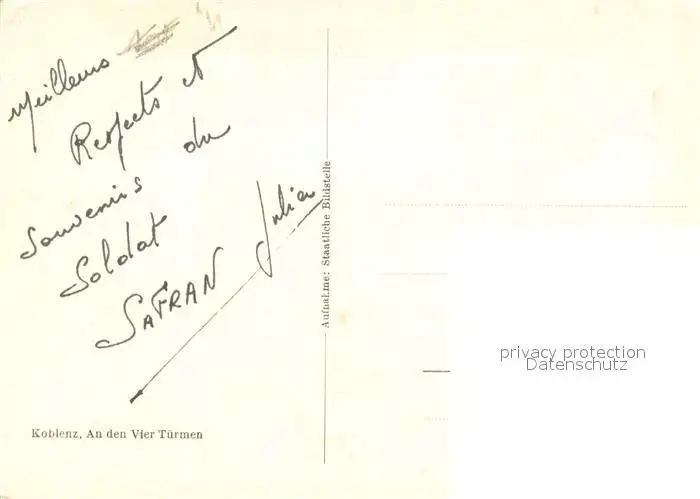 Meilleurs
Respects et
Souvenirs du
Soldat
SAFRAN Julien
Koblenz, An den Vier Türmen
Aufnahme: Staatliche Bildstelle
privacy protection
Datenschutz